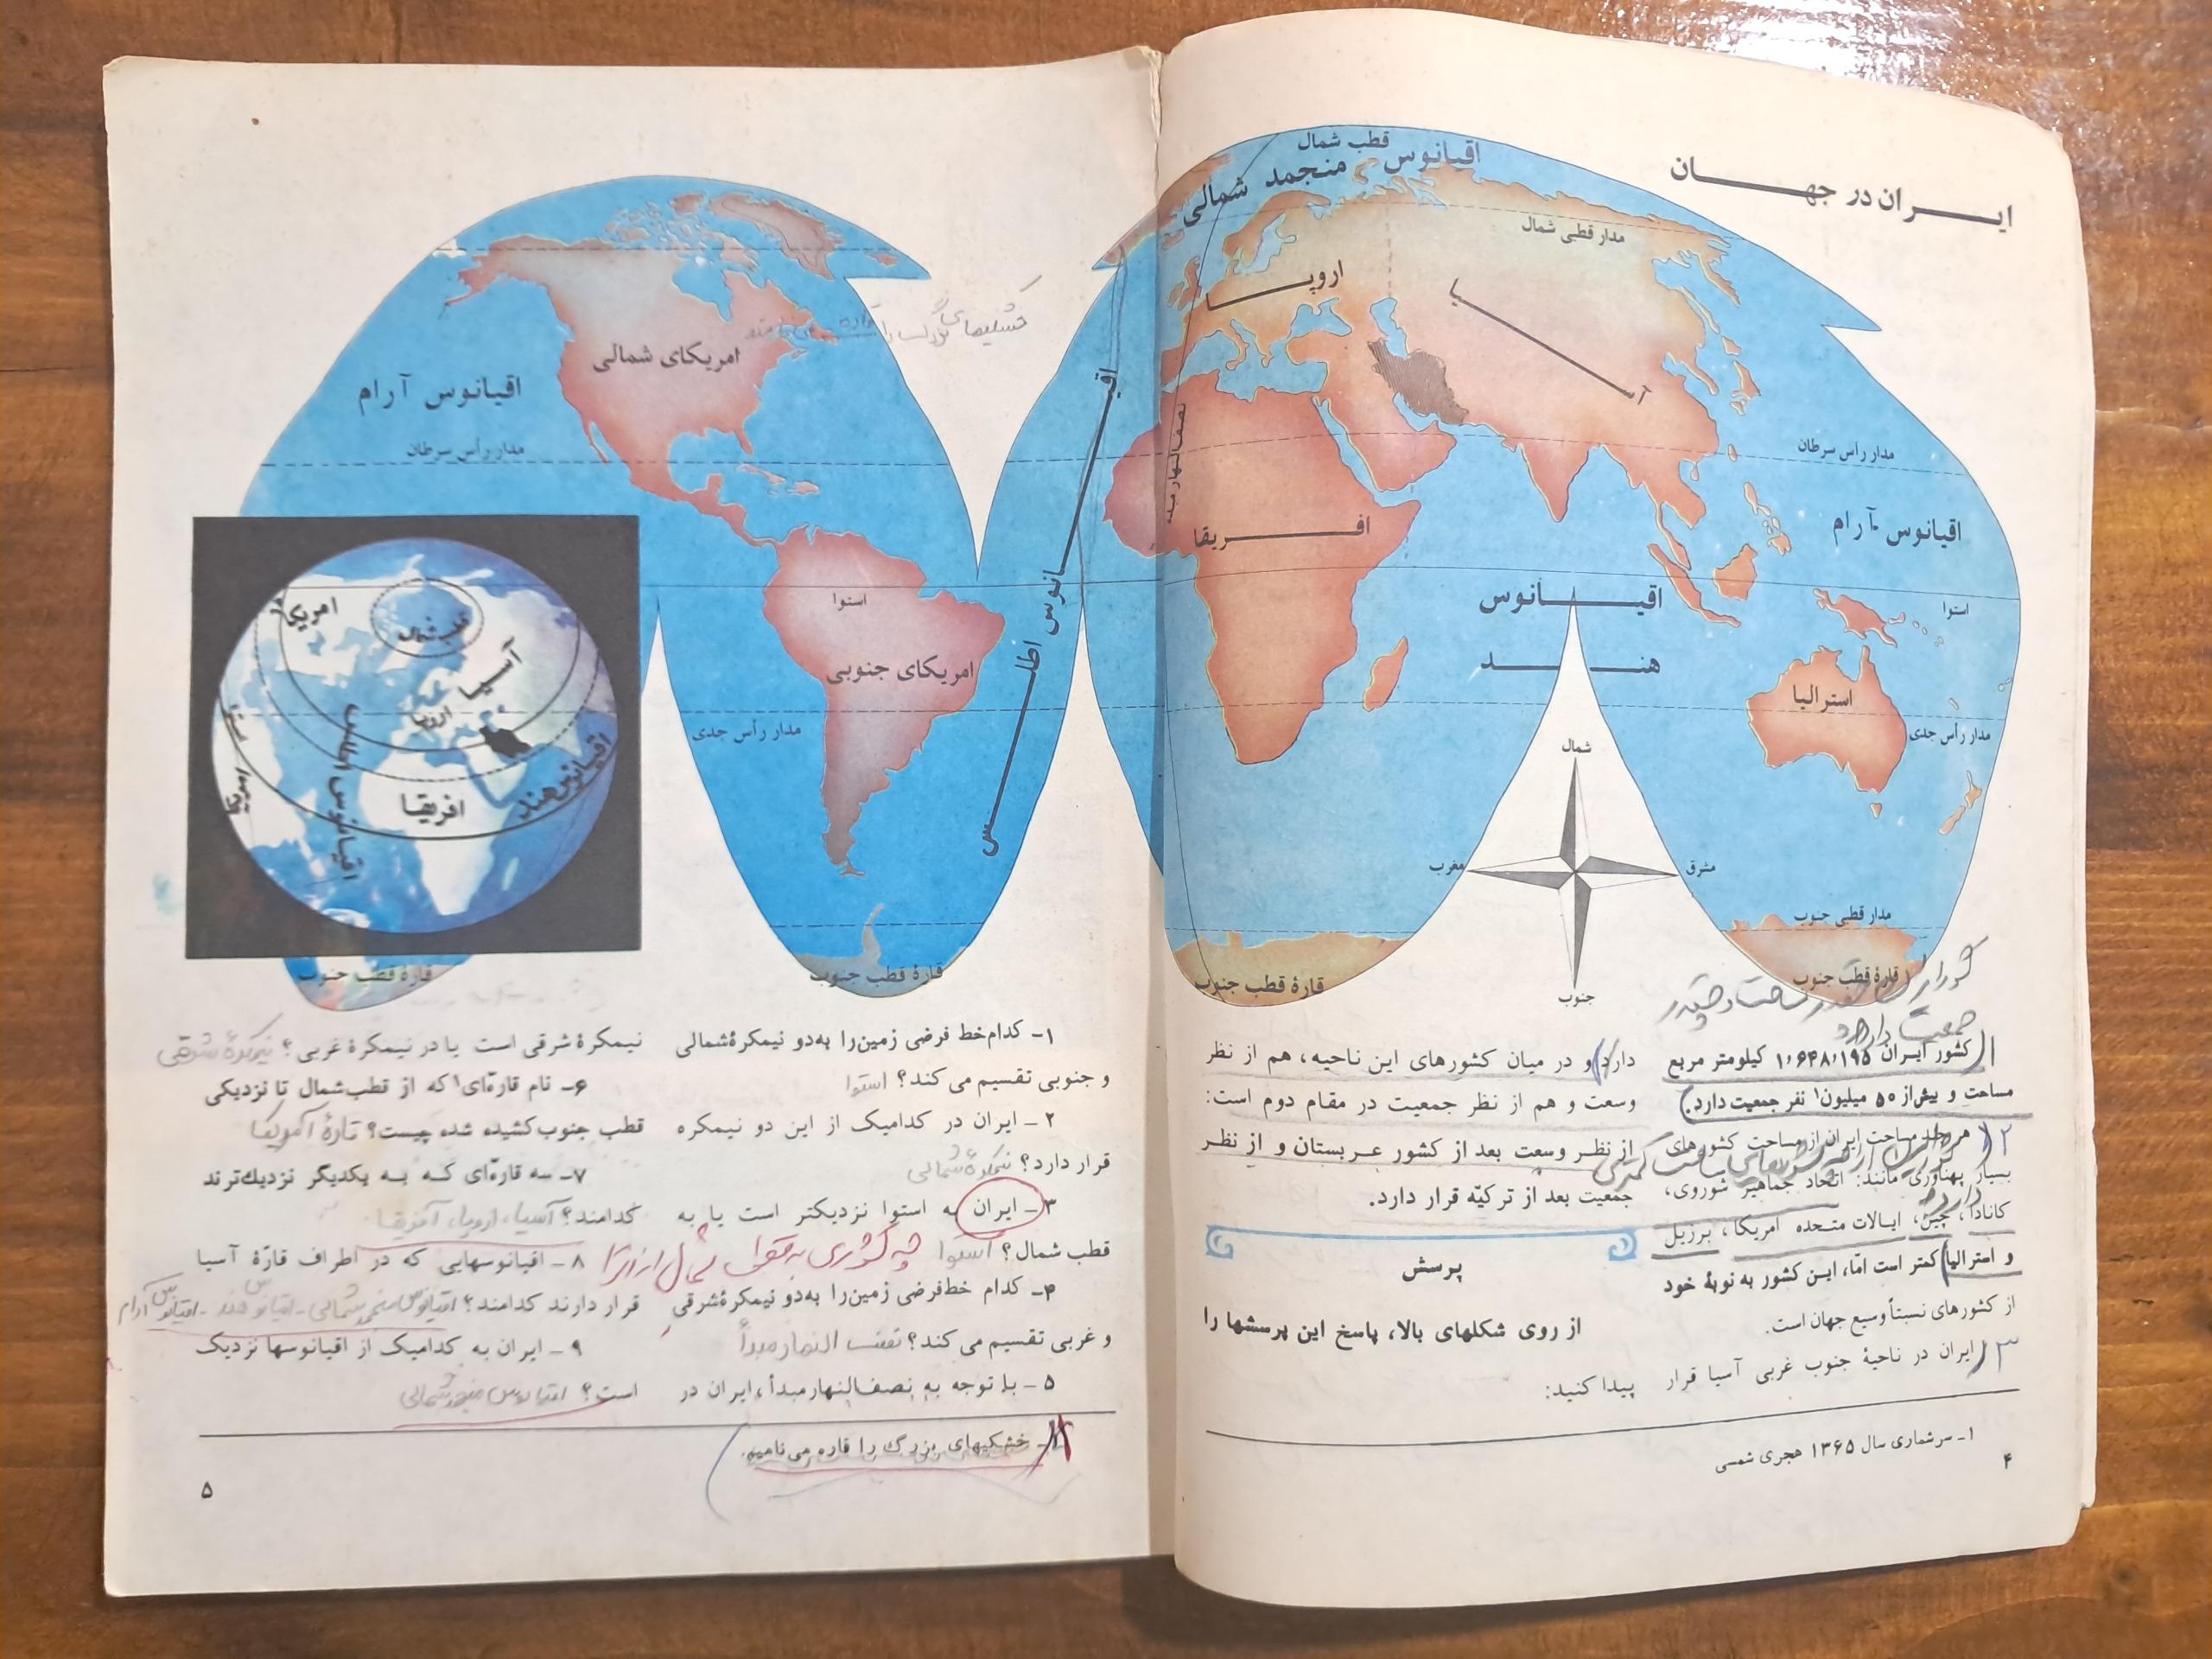 ایران در جهان
قطب شمال
اقیانوس منجمد شمالی
مدار قطبی شمال
اروپا
آسیا
مدار رأس سرطان
نصف‌النهار مبدء
افریقا
اقیانوس آرام
اقیانوس
هند
استوا
استرالیا
مدار رأس جدی
شمال
مغرب
مشرق
جنوب
مدار قطبی جنوب
قارهٔ قطب جنوب
قارهٔ قطب جنوب
کشور ایران ۱٬۶۴۸٬۱۹۵ کیلومتر مربع
مساحت و بیش‌از ۵۰ میلیون۱ نفر جمعیت دارد.
هر چند مساحت ایران از مساحت کشورهای
بسیار پهناوری مانند: اتحاد جماهیر شوروی،
کانادا، چین، ایالات متحده امریکا، برزیل
و استرالیا کمتر است امّا، این کشور به نوبهٔ خود
از کشورهای نسبتاً وسیع جهان است.
۳ ایران در ناحیهٔ جنوب غربی آسیا قرار
دارد و در میان کشورهای این ناحیه، هم از نظر
وسعت و هم از نظر جمعیت در مقام دوم است:
از نظر وسعت بعد از کشور عربستان و از نظر
جمعیت بعد از ترکیّه قرار دارد.
پرسش
از روی شکلهای بالا، پاسخ این پرسشها را
پیدا کنید:
۱ـ سرشماری سال ۱۳۶۵ هجری شمسی
۴
امریکای شمالی
اقیانوس آرام
مدار رأس سرطان
اقیانوس اطلس
استوا
امریکای جنوبی
مدار رأس جدی
امریکا
قطب شمال
آسیا
اروپا
اقیانوس هند
افریقا
اقیانوس اطلس
قارهٔ قطب جنوب
قارهٔ قطب جنوب
۱ـ کدام خط فرضی زمین را به‌دو نیمکرهٔ شمالی
و جنوبی تقسیم می کند؟ استوا
۲ـ ایران در کدامیک از این دو نیمکره
قرار دارد؟ نیمکرهٔ شمالی
۳ـ ایران به استوا نزدیکتر است یا به
قطب شمال؟ استوا
۴ـ کدام خط‌فرضی زمین را به‌دو نیمکرهٔ شرقی
و غربی تقسیم می کند؟ نصف النهار مبدأ
۵ـ با توجه به نصف‌النهار مبدأ، ایران در
نیمکرهٔ شرقی است یا در نیمکرهٔ غربی؟ نیمکرهٔ شرقی
۶ـ نام قارّه‌ای۱ که از قطب‌شمال تا نزدیکی
قطب جنوب کشیده شده چیست؟ قارهٔ آمریکا
۷ـ سه قارّه‌ای که به یکدیگر نزدیک‌ترند
کدامند؟ آسیا، اروپا، آفریقا
۸ـ اقیانوسهایی که در اطراف قارّهٔ آسیا
قرار دارند کدامند؟ اقیانوس منجمد شمالی ـ اقیانوس هند ـ اقیانوس آرام
۹ـ ایران به کدامیک از اقیانوسها نزدیک
است؟ اقیانوس منجمد شمالی
۱ـ خشکیهای بزرگ را قاره می‌نامیم.
۵